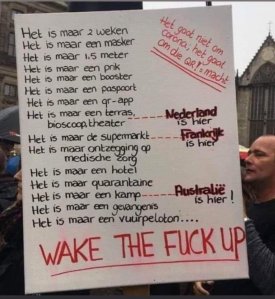 Het gaat niet om
corona, het gaat
om die QR = macht
Het is maar 2 weken
Het is maar een masker
Het is maar 1.5 meter
Het is maar een prik
Het is maar een booster
Het is maar een paspoort
Het is maar een qr-app
Het is maar een terras,
bioscoop, theater Nederland is hier
Het is maar de supermarkt Frankrijk is hier
Het is maar ontzegging op
medische zorg
Het is maar een hotel
Het is maar quarantaine
Het is maar een kamp Australië is hier!
Het is maar een gevangenis
Het is maar een vuurpeloton....
WAKE THE FUCK UP